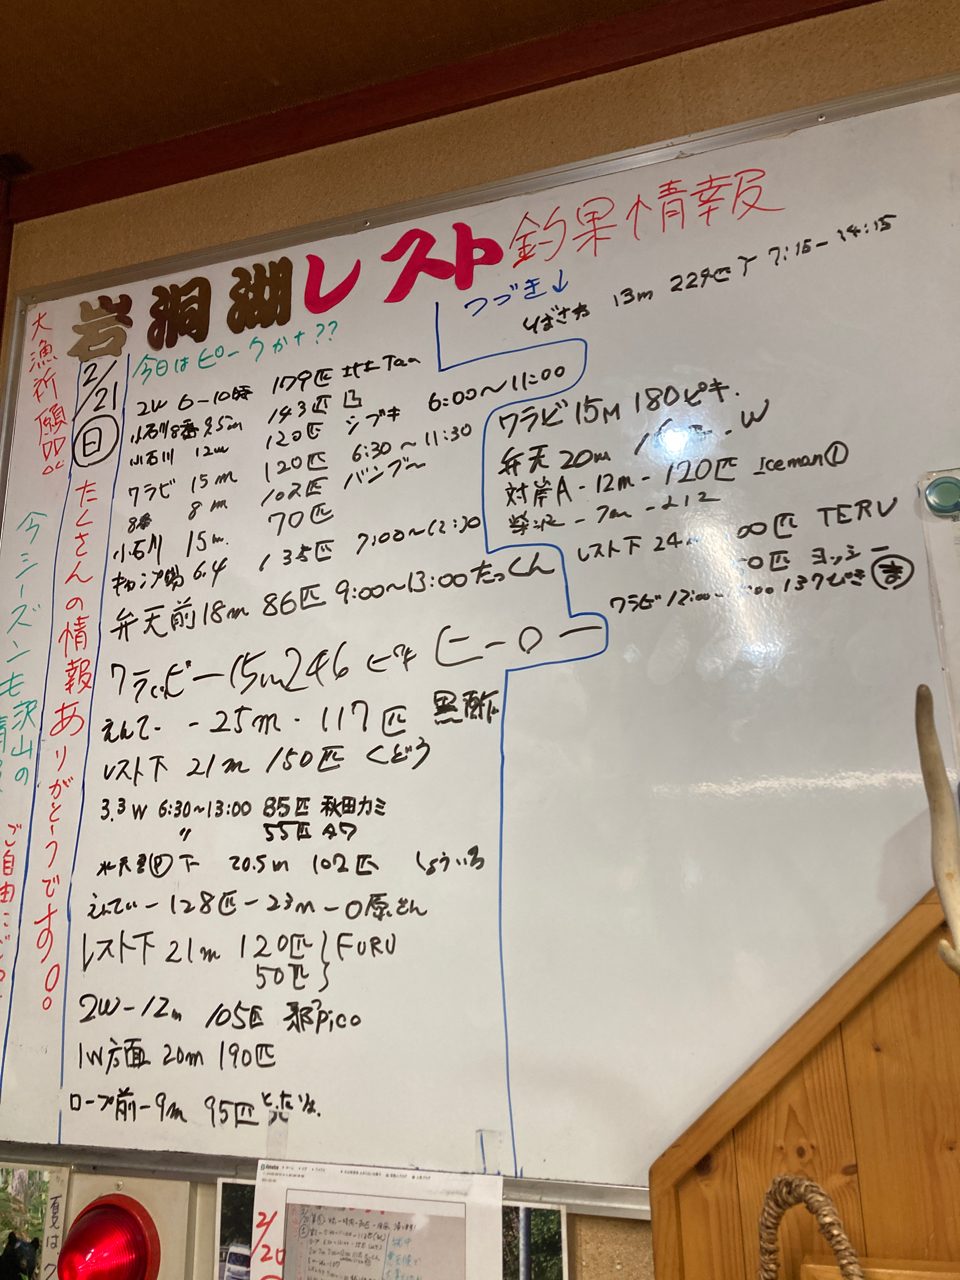 岩洞湖レスト釣果情報
大漁祈願!!
たくさんの情報ありがとうです。
今シーズンも沢山の
ご自由に
2/21
日
今日はピークかナ??
2W 6-10時 179匹
小石川8番 9.5m 143匹 凸
小石川 12m 120匹 シブキ 6:00〜11:00
ワラビ 15m 120匹 6:30〜11:30
8番 8m 102匹 バンブー
小石川 15m. 70匹
キャンプ場 6.4 135匹 7:00〜12:30
弁天前18m 86匹 9:00〜13:00 たっくん
ワラビー15m246ピキ ヒーロー
えんてー -25m- 117匹 黒酢
レスト下 21m 150匹 くどう
3.3W 6:30〜13:00 85匹 秋田カミ
〃 55匹
下 20.5m 102匹 しょういち
えんてぃー128匹-23m-〇原さん
レスト下 21m 120匹 FURU
50匹
2W-12m 105匹 pico
1W方面 20m 190匹
ロープ前-9m 95匹
つづき↓
つばさ 13m 229匹 7:15-14:15
ワラビ15M 180ピキ.
弁天20m W
対岸A-12m-120匹 Iceman①
-7m-212
レスト下 24m 00匹 TERU
0匹 ヨッシー
ワラビ12:00- :00 137ぴき 吉
2/20